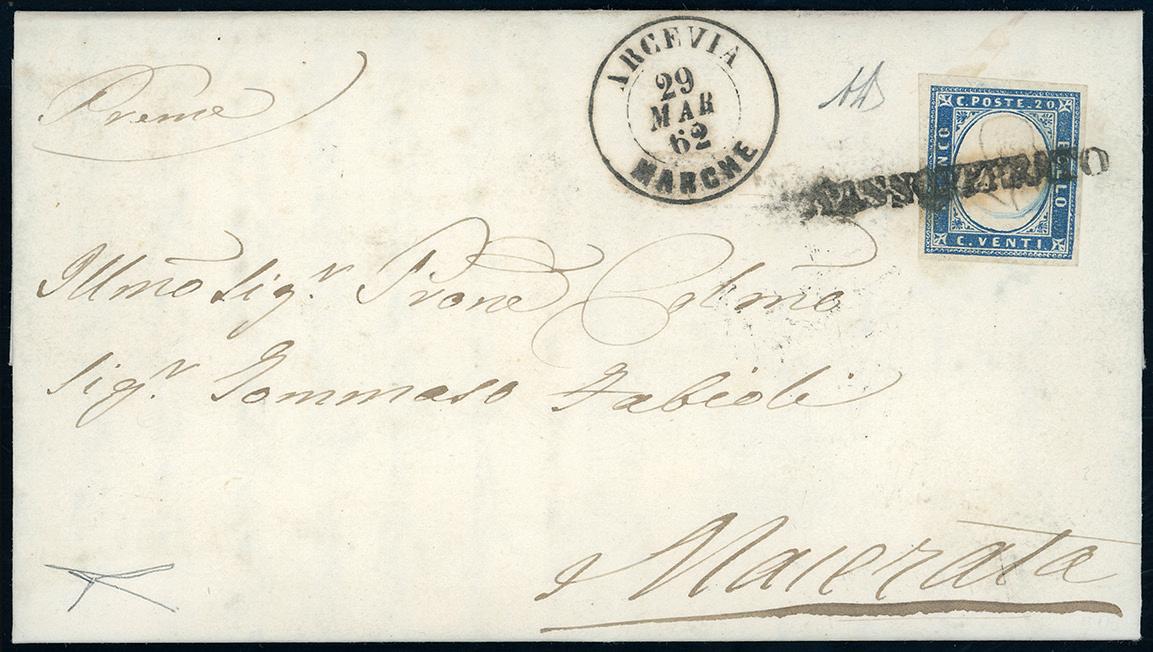 Preme
ARCEVIA
29
MAR
62
MARCHE
C. POSTE. 20
NCO
BOLLO
C. VENTI.
Illmo Sigr Prone Colmo
Sigr Tommaso Fabioli
Macerata